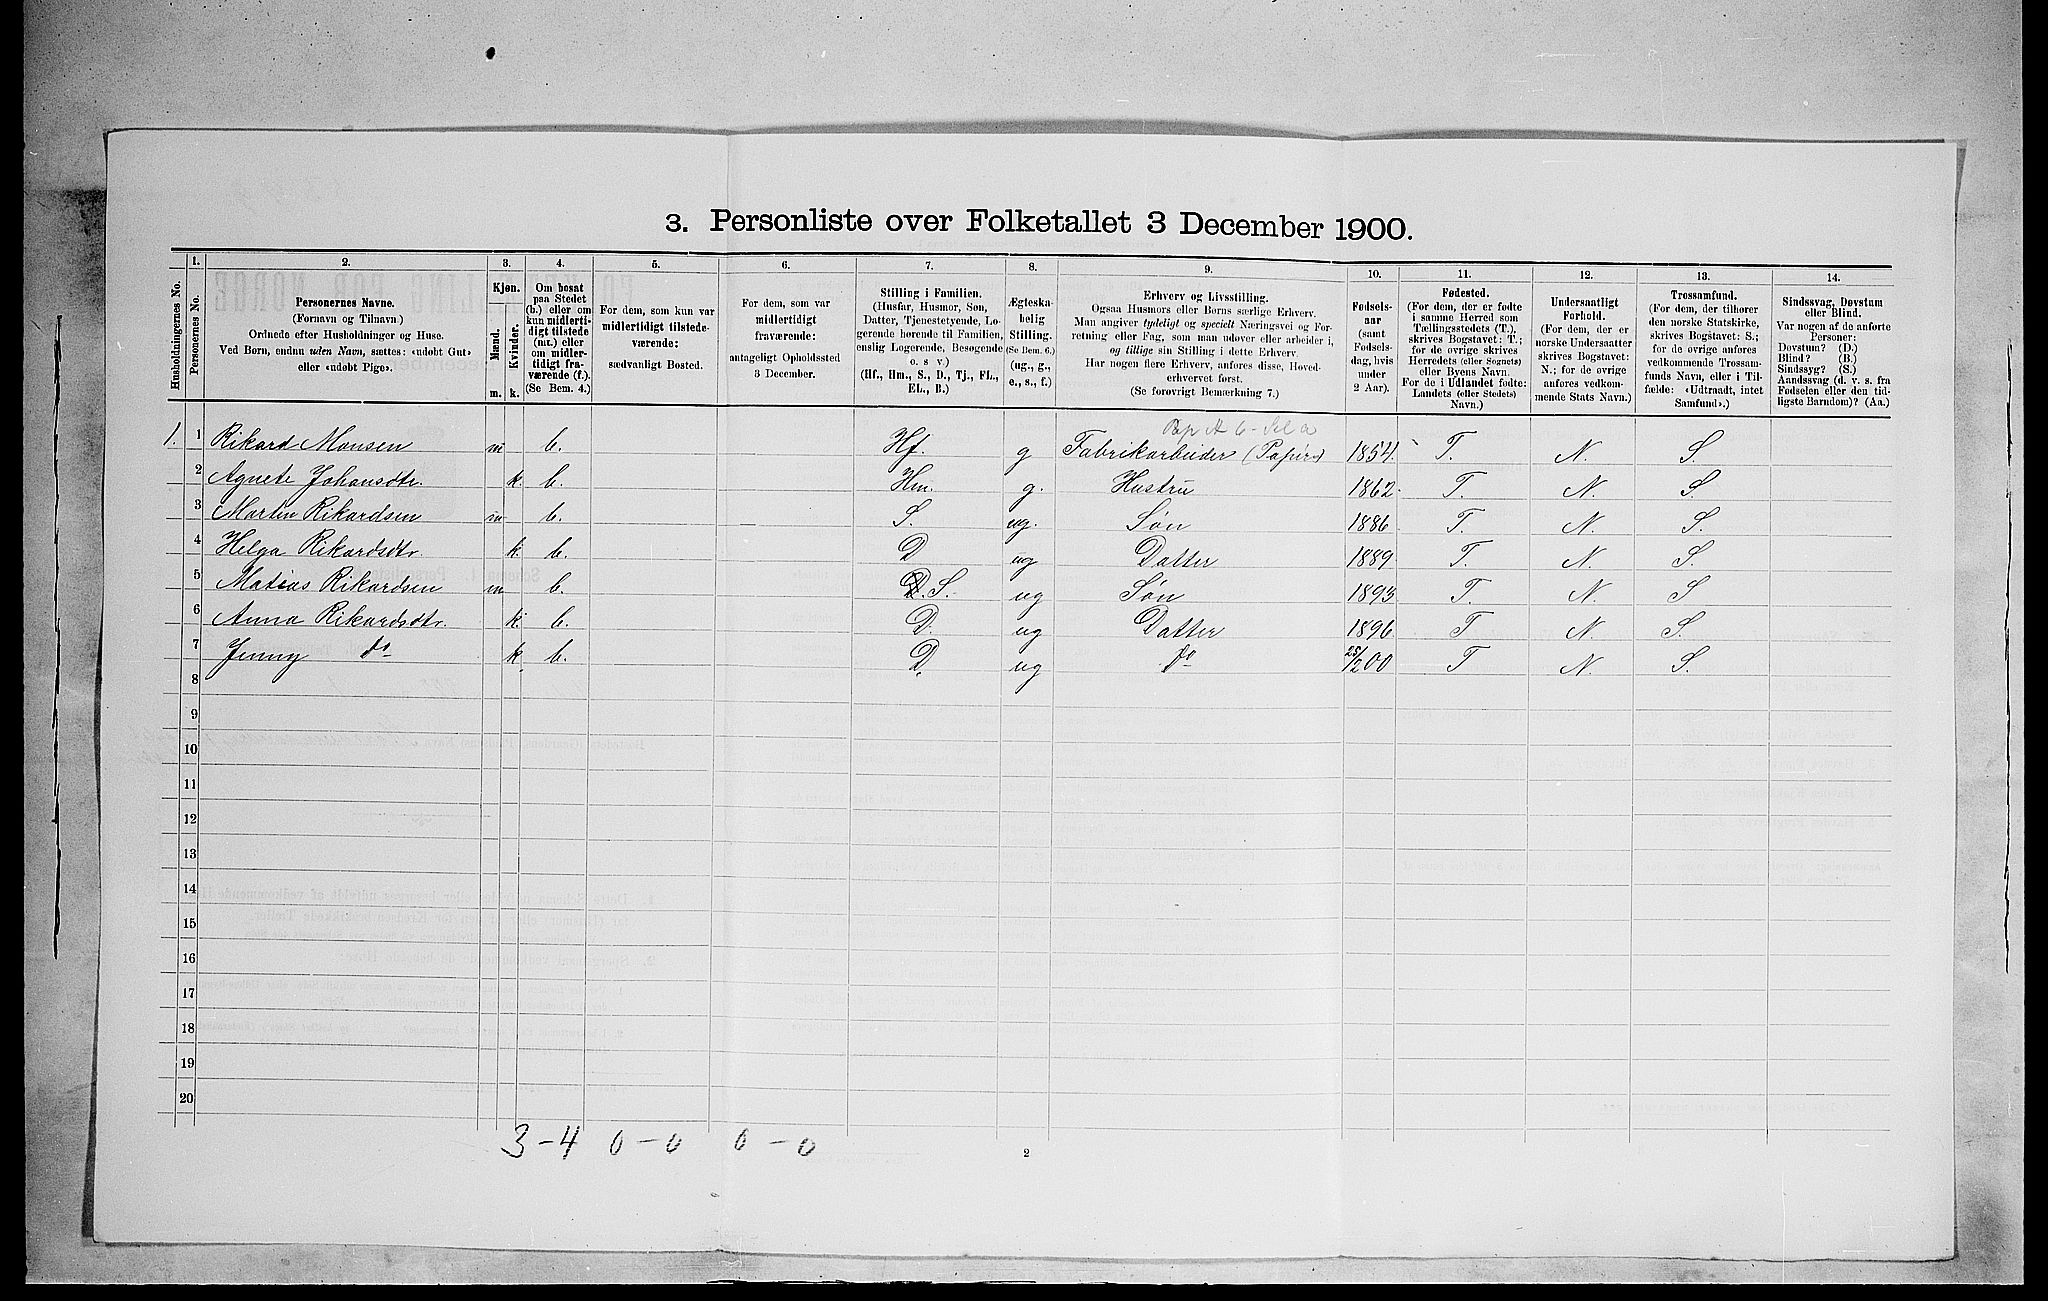 3. Personliste over Folketallet 3 December 1900.
Husholdningernes No.
1.
Personernes No.
2.
Personernes Navne.
(Fornavn og Tilnavn)
Ordnede efter Husholdninger og Huse.
Ved Børn, endnu uden Navn, sættes: «udøbt Gut»
eller «udøbt Pige».
3.
Kjøn.
Mænd.
Kvinder.
m. k.
4.
Om bosat
paa Stedet
(b.) eller om
kun midlerti-
digt tilstede
(mt.) eller
om midler-
tidigt fra-
værende (f.).
(Se Bem. 4.)
5.
For dem, som kun var
midlertidigt tilstede-
værende:
sædvanligt Bosted.
6.
For dem, som var
midlertidigt
fraværende:
antageligt Opholdssted
3 December.
7.
Stilling i Familien.
(Husfar, Husmor, Søn,
Datter, Tjenestetyende, Lo-
gerende hørende til Familien,
enslig Logerende, Besøgende
o. s v.)
(Hf., Hm., S., D., Tj., FL.,
EL., B.)
8.
Ægteska-
belig
Stilling.
(Se Bem. 6.)
(ug., g.,
e., s., f.)
9.
Erhverv og Livsstilling.
Ogsaa Husmors eller Børns særlige Erhverv.
Man angiver tydeligt og specielt Næringsvei og For-
retning eller Fag, som man udøver eller arbeider i,
og tillige sin Stilling i dette Erhverv.
Har nogen flere Erhverv, anføres disse, Hoved-
erhvervet først.
(Se forøvrigt Bemærkning 7.)
10.
Fødsels-
aar
(samt
Fødsels-
dag, hvis
under
2 Aar).
11.
Fødested.
(For dem, der er fødte
i samme Herred som
Tællingsstedets (T.),
skrives Bogstavet: T.;
for de øvrige skrives
Herredets (eller Sognets)
eller Byens Navn.
For de i Udlandet fødte:
Landets (eller Stedets)
Navn.)
12.
Undersaatligt
Forhold.
(For dem, der er
norske Undersaatter
skrives Bogstavet:
N.; for de øvrige
anføres vedkom-
mende Stats Navn.)
13.
Trossamfund.
(For dem, der tilhører
den norske Statskirke,
skrives Bogstavet: S.;
for de øvrige anføres
vedkommende Trossam-
funds Navn, eller i Til-
fælde: «Udtraadt, intet
Samfund».)
14.
Sindssvag, Døvstum
eller Blind.
Var nogen af de anførte
Personer:
Døvstum? (D.)
Blind? (B.)
Sindssyg? (S.)
Aandssvag (d. v. s. fra
Fødselen eller den tid-
ligste Barndom)? (Aa.)
1. 1 Rikard Monsen m b. Hf. g Fabrikarbeider (Papir) 1854. T. N. S.
2 Agnete Johansdtr. k. b. Hm. g. Hustru 1862. T. N. S.
3 Martin Rikardsen m b. S. ug. Søn 1886 T. N. S.
4 Helga Rikardsdtr. k. b. D ug Datter 1889 T. N. S.
5 Matias Rikardsen m b. D. S. ug Søn 1893 T. N. S
6 Anna Rikardsdtr. k. b. D. ug Datter 1896 T N. S.
7 Jenny do k. b. D. ug do 25/2 00 T N. S.
8
9
10
11
12
13
14
15
16
17
18
19
20
3 - 4 0 - 0 0 - 0
2